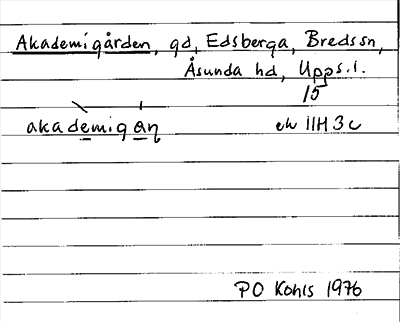 Akademigården, gd, Edsberga, Bredssn,
Åsunda hd, Upps.l.
15
akademigaɳ ek 11H3c
PO Kohls 1976